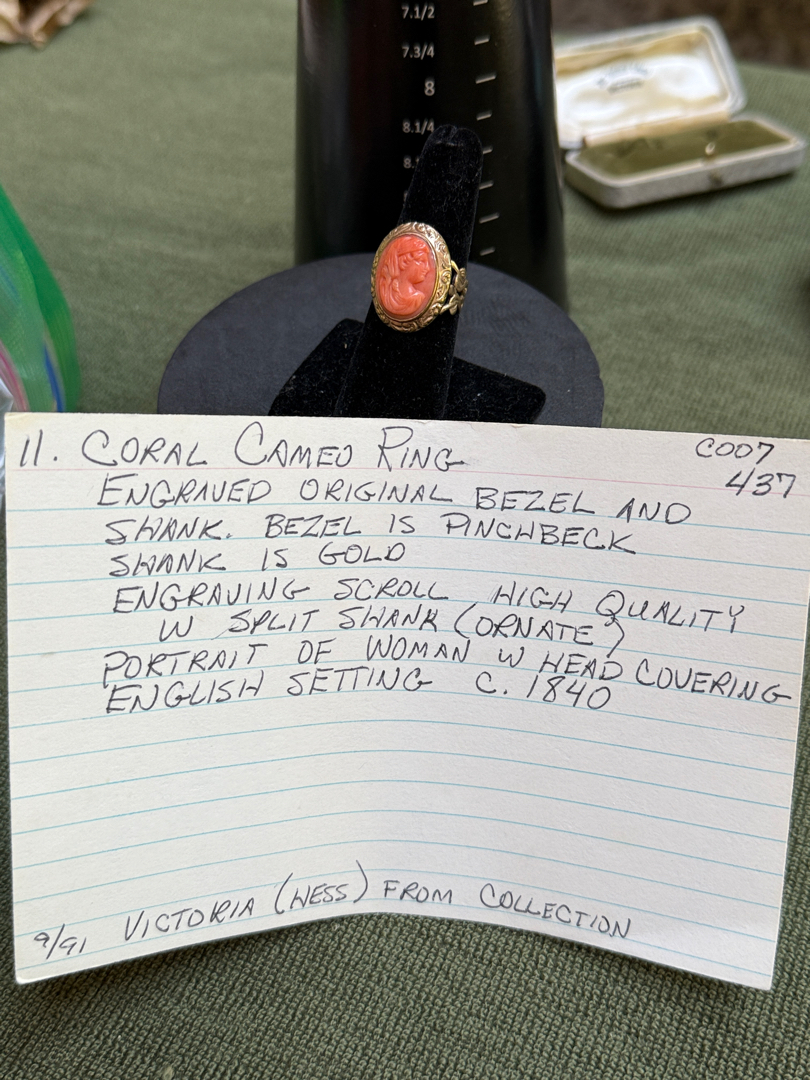 7.1/2
7.3/4
8
8.1/4
11. CORAL CAMEO RING
C007
437
ENGRAVED ORIGINAL BEZEL AND
SHANK. BEZEL IS PINCHBECK
SHANK IS GOLD
ENGRAVING SCROLL HIGH QUALITY
W SPLIT SHANK (ORNATE)
PORTRAIT OF WOMAN W HEAD COVERING
ENGLISH SETTING C. 1840
9/91 VICTORIA (HESS) FROM COLLECTION